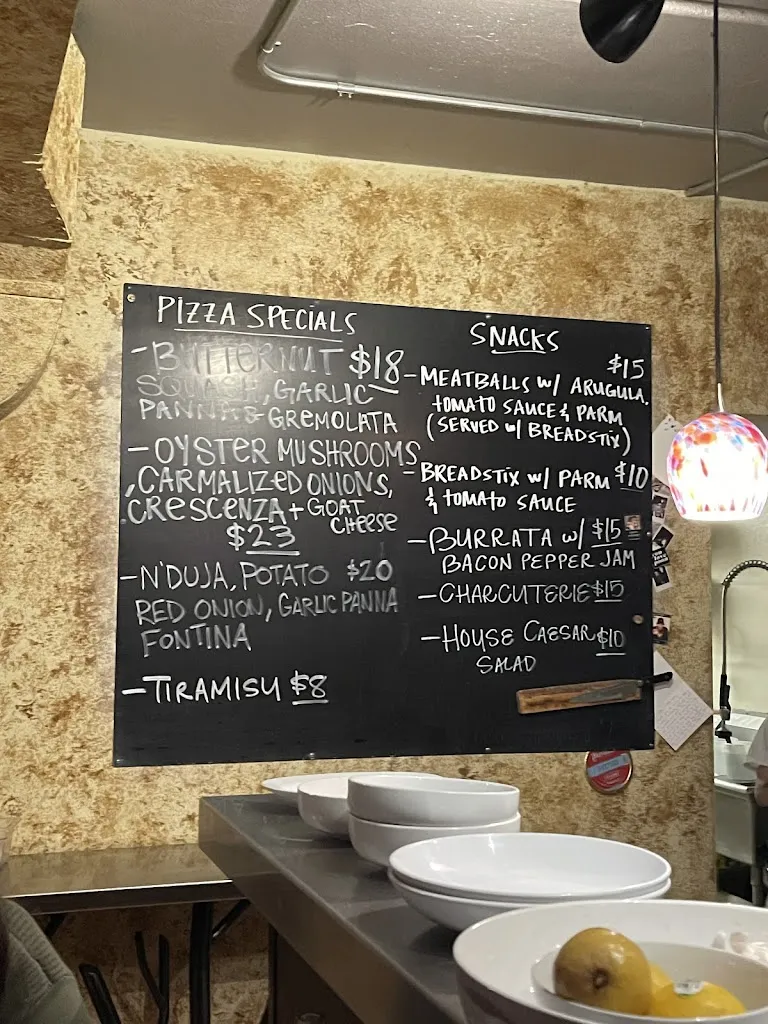 PIZZA SPECIALS
- BUTTERNUT $18
SQUASH, GARLIC
PANNA & GREMOLATA
- OYSTER MUSHROOMS
, CARMALIZED ONIONS,
CRESCENZA + GOAT
CHEESE
$23
- N'DUJA, POTATO $20
RED ONION, GARLIC PANNA
FONTINA
- TIRAMISU $8
SNACKS
$15
- MEATBALLS W/ ARUGULA,
TOMATO SAUCE & PARM
(SERVED W/ BREADSTIX)
- BREADSTIX W/ PARM $10
& TOMATO SAUCE
- BURRATA W/ $15
BACON PEPPER JAM
- CHARCUTERIE $15
- HOUSE CAESAR $10
SALAD